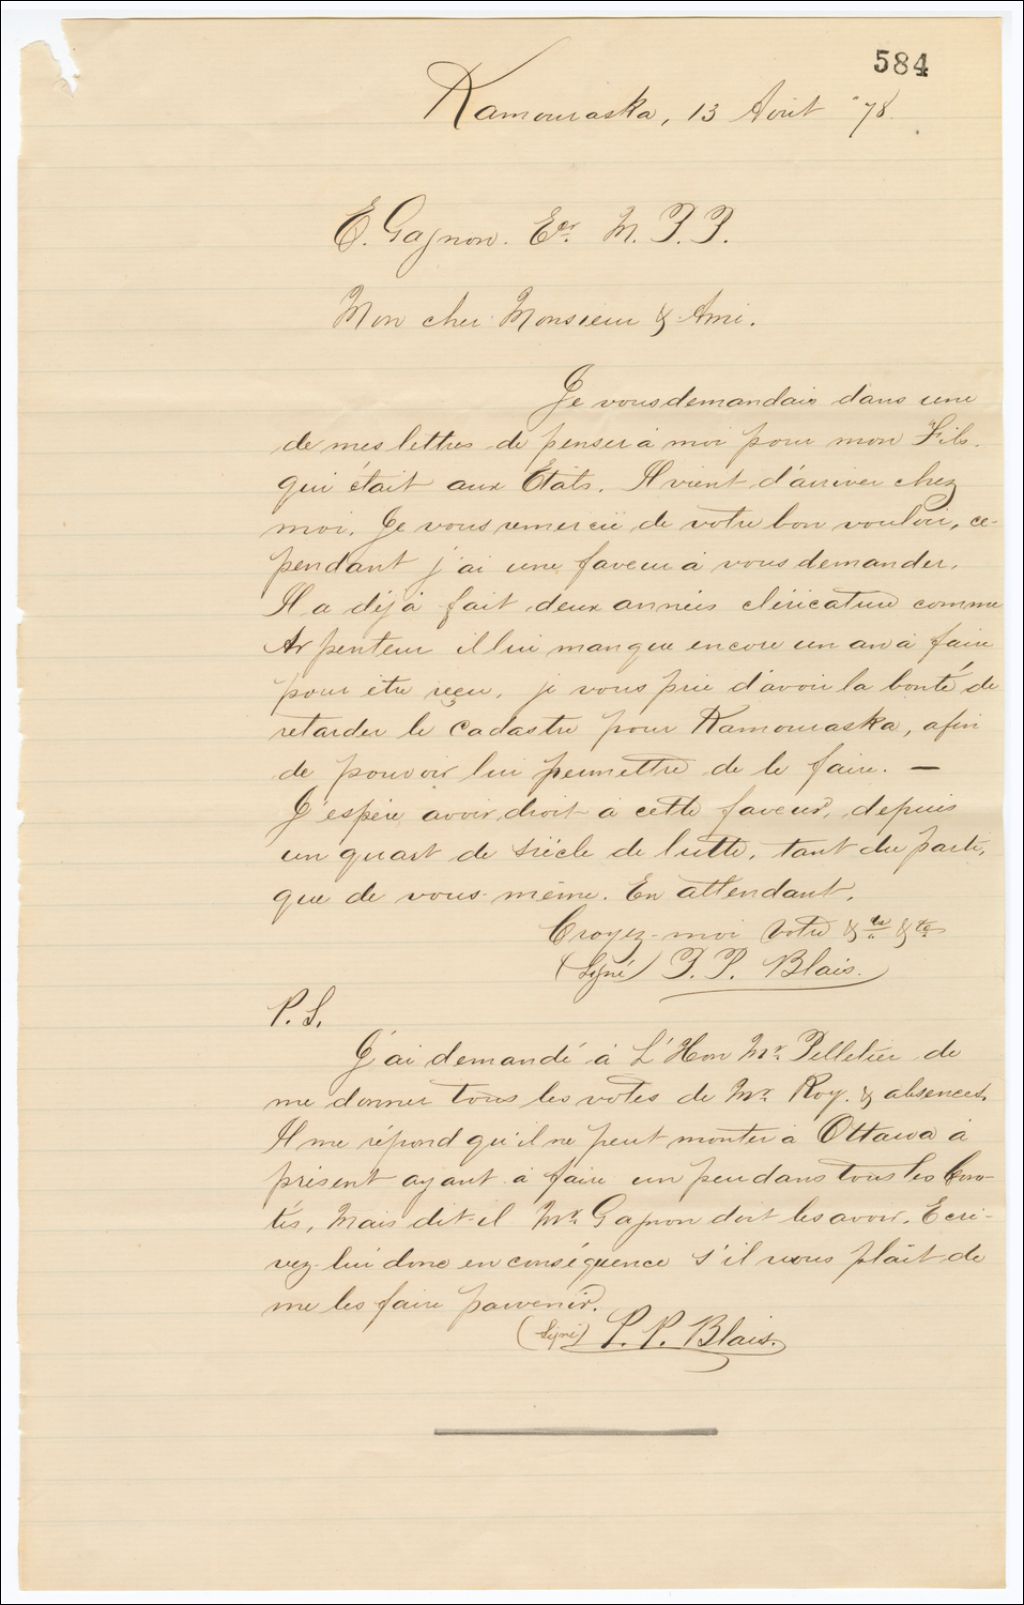 584
Kamouraska, 13 Août '78.
E. Gagnon. Ecr. M. P. P.
Mon cher Monsieur & Ami.
Je vous demandais dans une
de mes lettres de penser à moi pour mon Fils.
qui était aux États. Il vient d'arriver chez
moi. Je vous remercie de votre bon vouloir, ce-
pendant j'ai une faveur à vous demander.
Il a déjà fait deux années cléricature comme
Arpenteur il lui manque encore un an à faire
pour être reçu. je vous prie d'avoir la bonté de
retarder le Cadastre pour Kamouraska, afin
de pouvoir lui permettre de le faire. —
J'espère avoir droit à cette faveur, depuis
un quart de siècle de lutte, tant du parti,
que de vous-même. En attendant.
Croyez-moi Votre &te &te
(Signé) P. P. Blais.
P. S.
J'ai demandé à L'Hon Mr. Pelletier de
me donner tous les votes de Mr. Roy. & absences.
Il me répond qu'il ne peut monter à Ottawa à
présent ayant à faire un peu dans tous les Com-
tés, Mais dit-il Mr. Gagnon doit les avoir. Ecri-
vez-lui donc en conséquence s'il vous plâit de
me les faire parvenir.
(Signé) P. P. Blais.